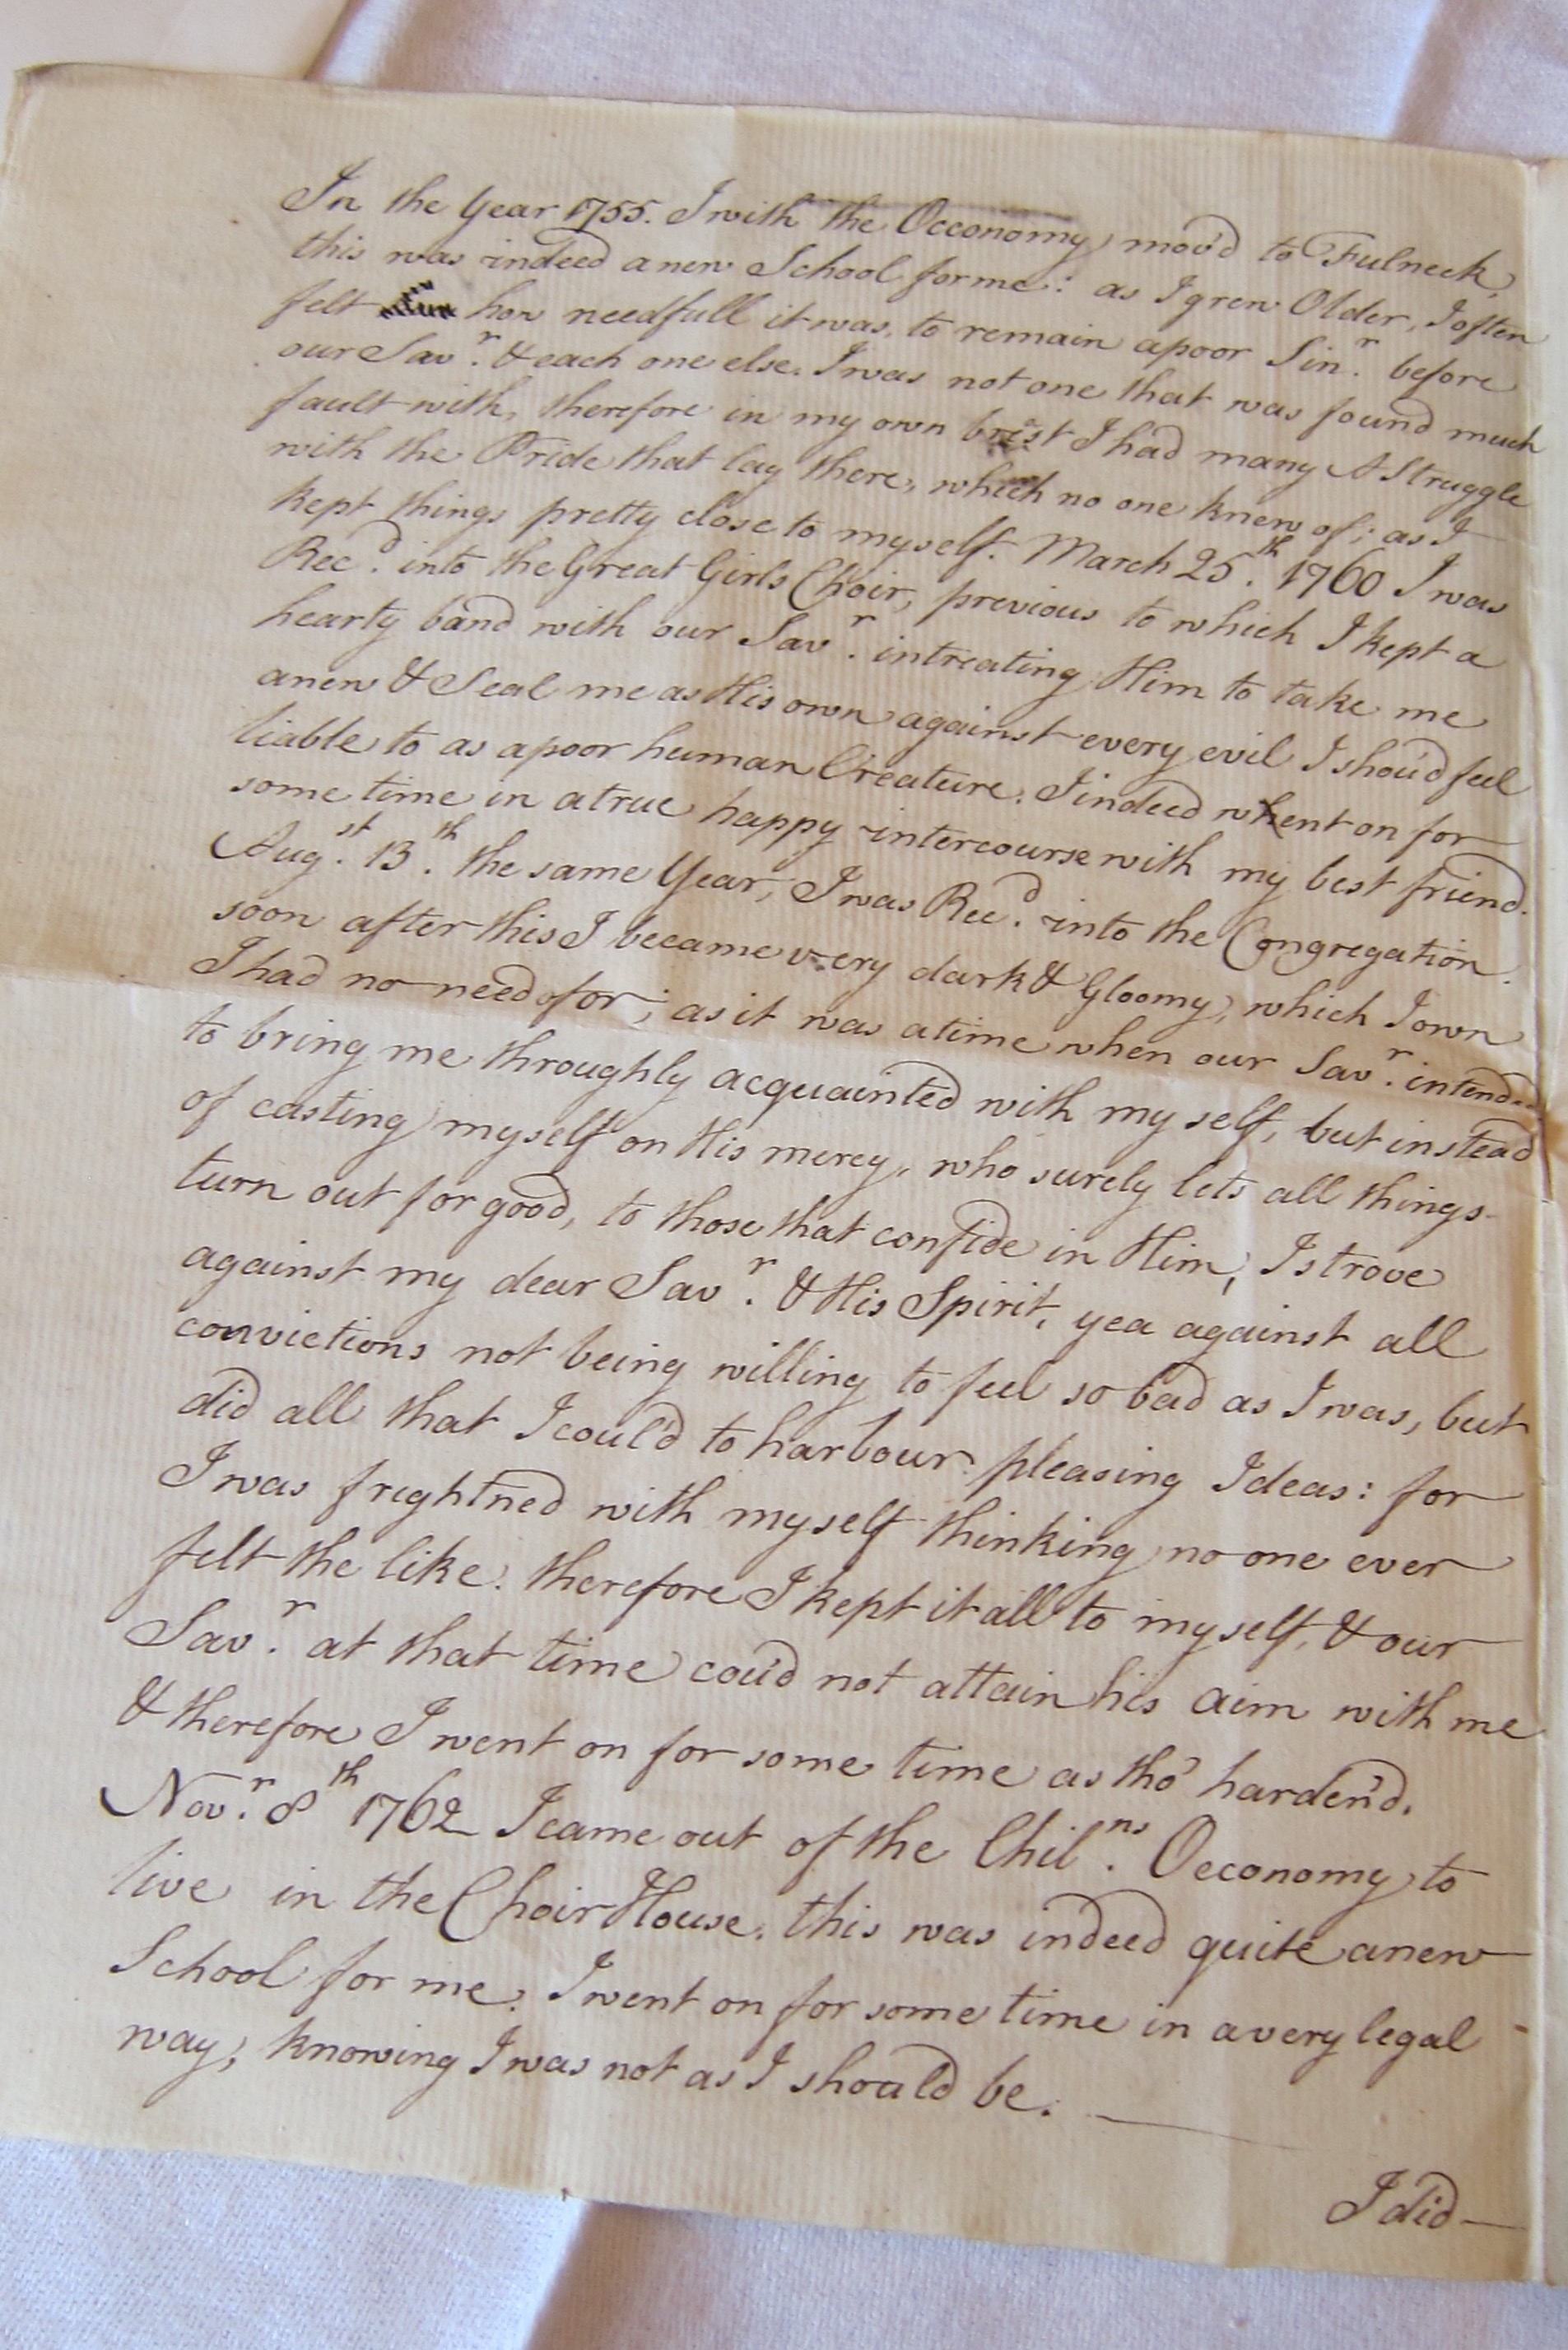 In the Year 1755. I with the Oeconomy mov'd to Fulneck,
this was indeed a new School for me: as I grew Older, I often
felt how needfull it was, to remain a poor Sinr. before
our Savr. & each one else. I was not one that was found much
fault with, therefore in my own brest I had many A Struggle
with the Pride that lay there, which no one knew of; as I
kept things pretty close to myself. March 25th. 1760 I was
Recd. into the Great Girls Choir, previous to which I kept a
hearty band with our Savr. intreating Him to take me
anew & Seal me as His own against every evil I shou'd feel
liable to as a poor human Creature. I indeed went on for
some time in a true happy intercourse with my best friend.
Augst. 13th. the same Year, I was Recd. into the Congregation.
soon after this I became very dark & Gloomy, which I own
I had no need of for; as it was a time when our Savr. intended
to bring me throughly acquainted with my self, but instead
of casting myself on His mercy, who surely lets all things
turn out for good, to those that confide in Him, I strove
against my dear Savr. & His Spirit, yea against all
convictions not being willing to feel so bad as I was, but
did all that I could to harbour pleasing Ideas: for
I was frightned with myself thinking no one ever
felt the like. therefore I kept it all to myself, & our
Savr. at that time cou'd not attain his aim with me
& therefore I went on for some time as tho' harden'd.
Novr. 8th 1762 I came out of the Chilns. Oeconomy to
live in the Choir House. this was indeed quite a new
School for me. I went on for some time in a very legal
way, knowing I was not as I should be.
I did—